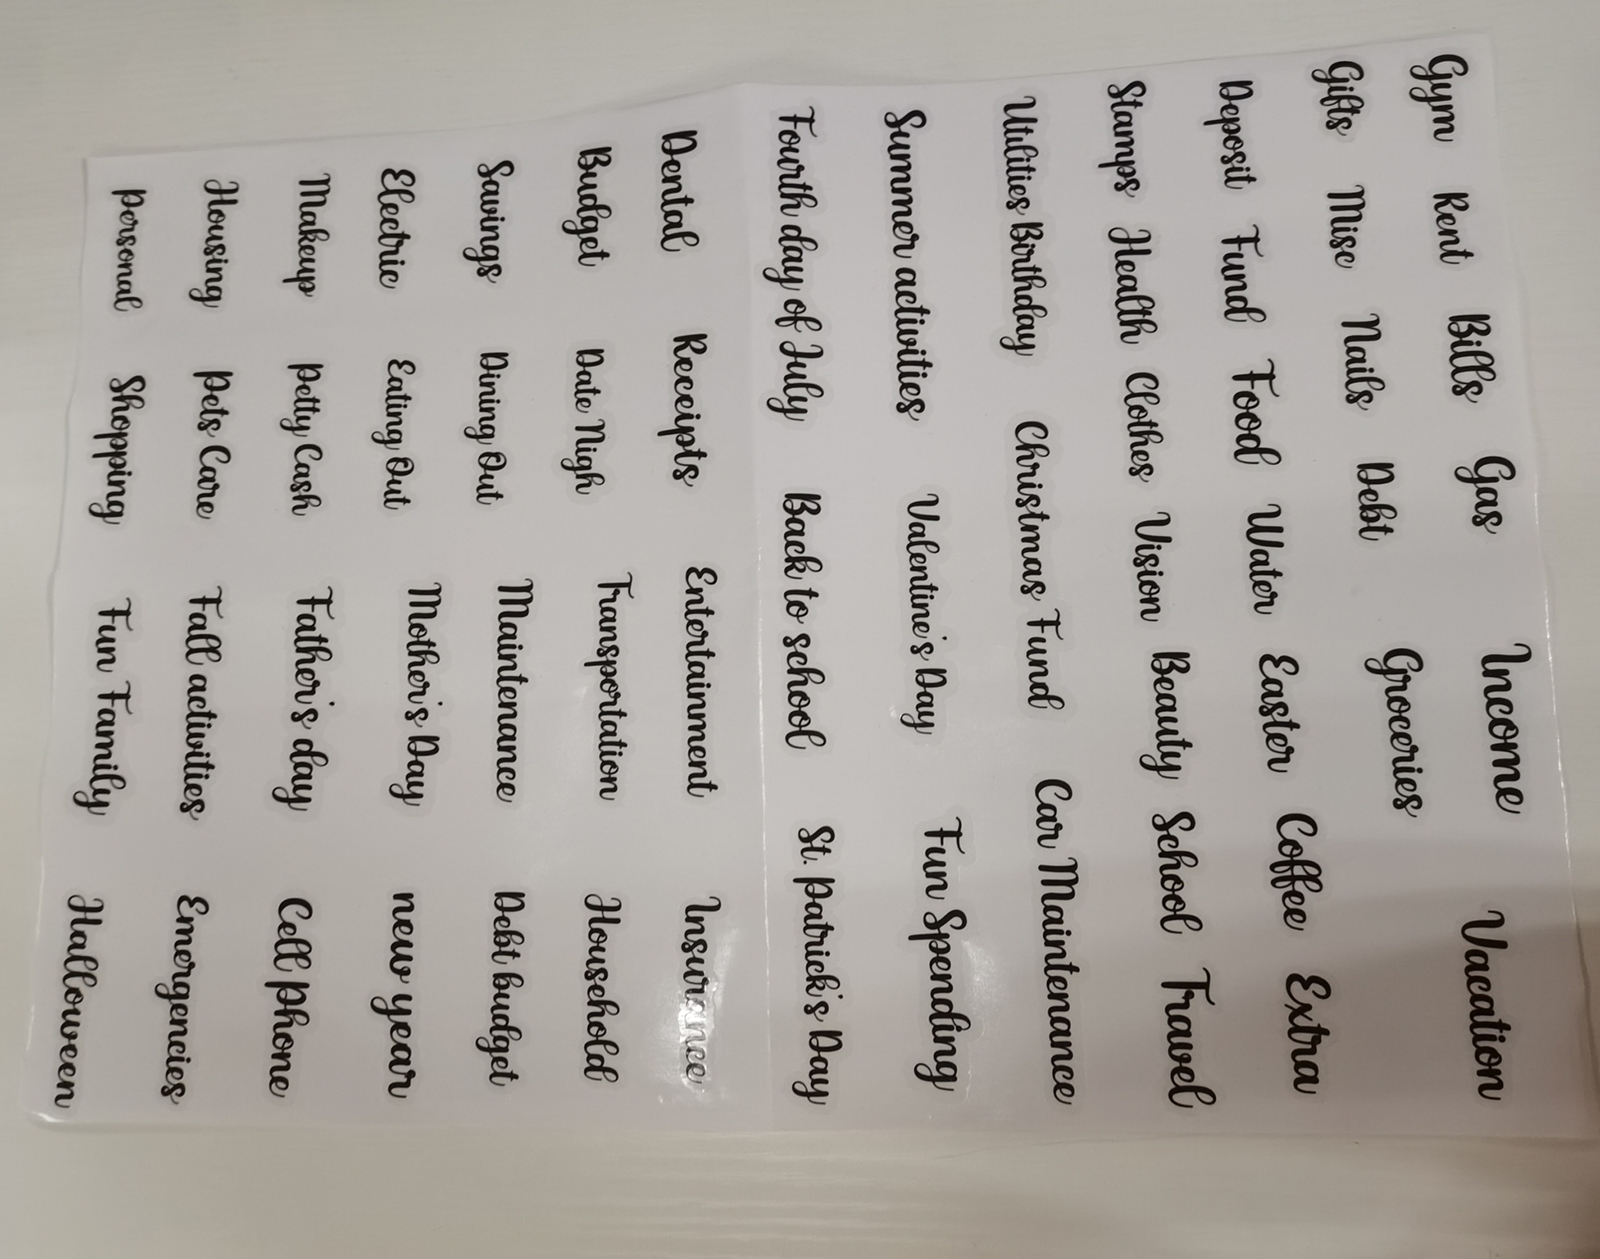 Gym Rent Bills Gas Income Vacation
Gifts Misc Nails Debt Groceries
Deposit Fund Food Water Easter Coffee Extra
Stamps Health Clothes Vision Beauty School Travel
Utilities Birthday Christmas Fund Car Maintenance
Summer activities Valentine's Day Fun Spending
Fourth day of July Back to school St. Patrick's Day
Dental Receipts Entertainment Insurance
Budget Date Nigh Transportation Household
Savings Dining Out Maintenance Debt budget
Electric Eating Out Mother's Day new year
Makeup Petty Cash Father's day Cell Phone
Housing Pets Care Fall activities Emergencies
Personal Shopping Fun Family Halloween